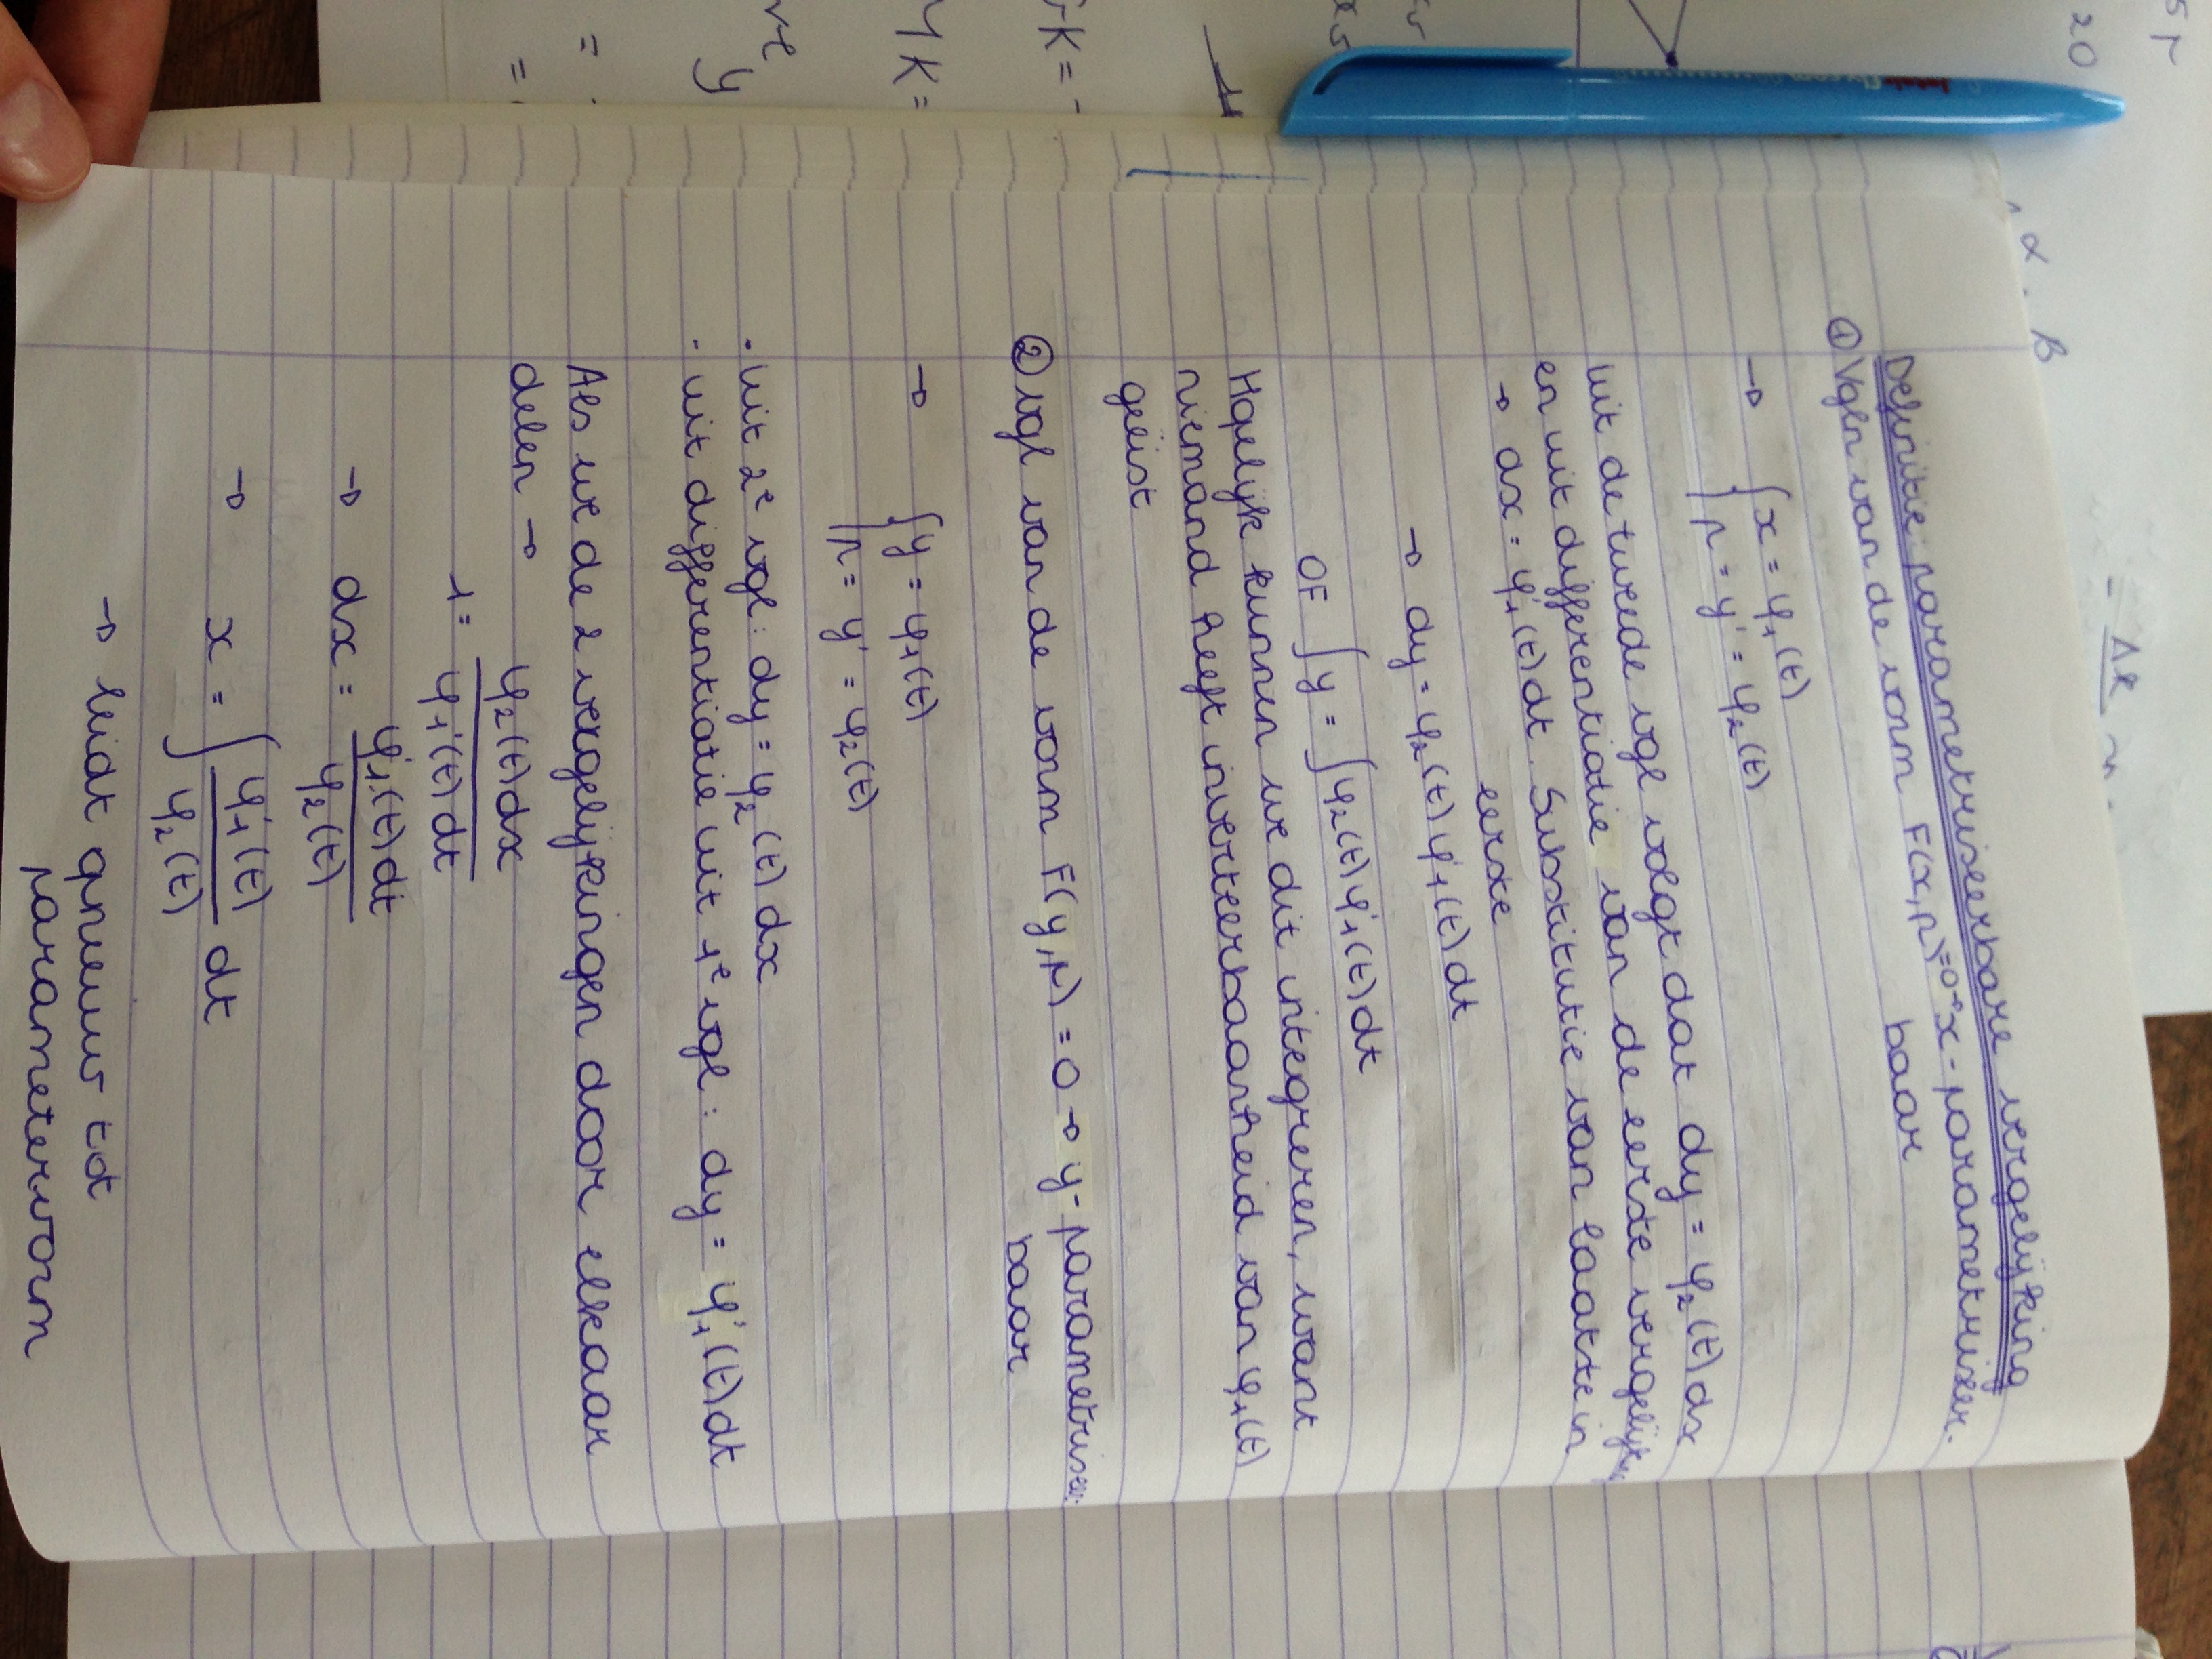 5 p
20
= Δk
, α . B
Definitie: parametriseerbare vergelijking
① Vgln van de vorm F(x,p)=0 → x-parametriseer-
baar
→ { x = φ₁(t)
p = y' = φ₂(t)
uit de tweede vgl volgt dat dy = φ₂(t) dx
en uit differentiatie van de eerste vergelijking
→ dx = φ₁'(t) dt. Substitutie van laatste in
eerste
→ dy = φ₂(t) φ₁'(t) dt
OF ∫ y = ∫ φ₂(t) φ₁'(t) dt
kunnen we dit integreren, want
niemand heeft inverteerbaarheid van φ₁(t)
geëist
② vgl van de vorm F(y,p) = 0 → y-parametriseer-
baar
→ { y = φ₁(t)
p = y' = φ₂(t)
- uit 2e vgl: dy = φ₂(t) dx
- uit differentiatie uit 1e vgl: dy = φ₁'(t) dt
Als we de 2 vergelijkingen door elkaar
delen →
1 = φ₂(t) dx / φ₁'(t) dt
→ dx = φ₁'(t) dt / φ₂(t)
→ x = ∫ φ₁'(t) / φ₂(t) dt
→ leidt opnieuw tot
parametervorm
GK =
MK =
y
=
=